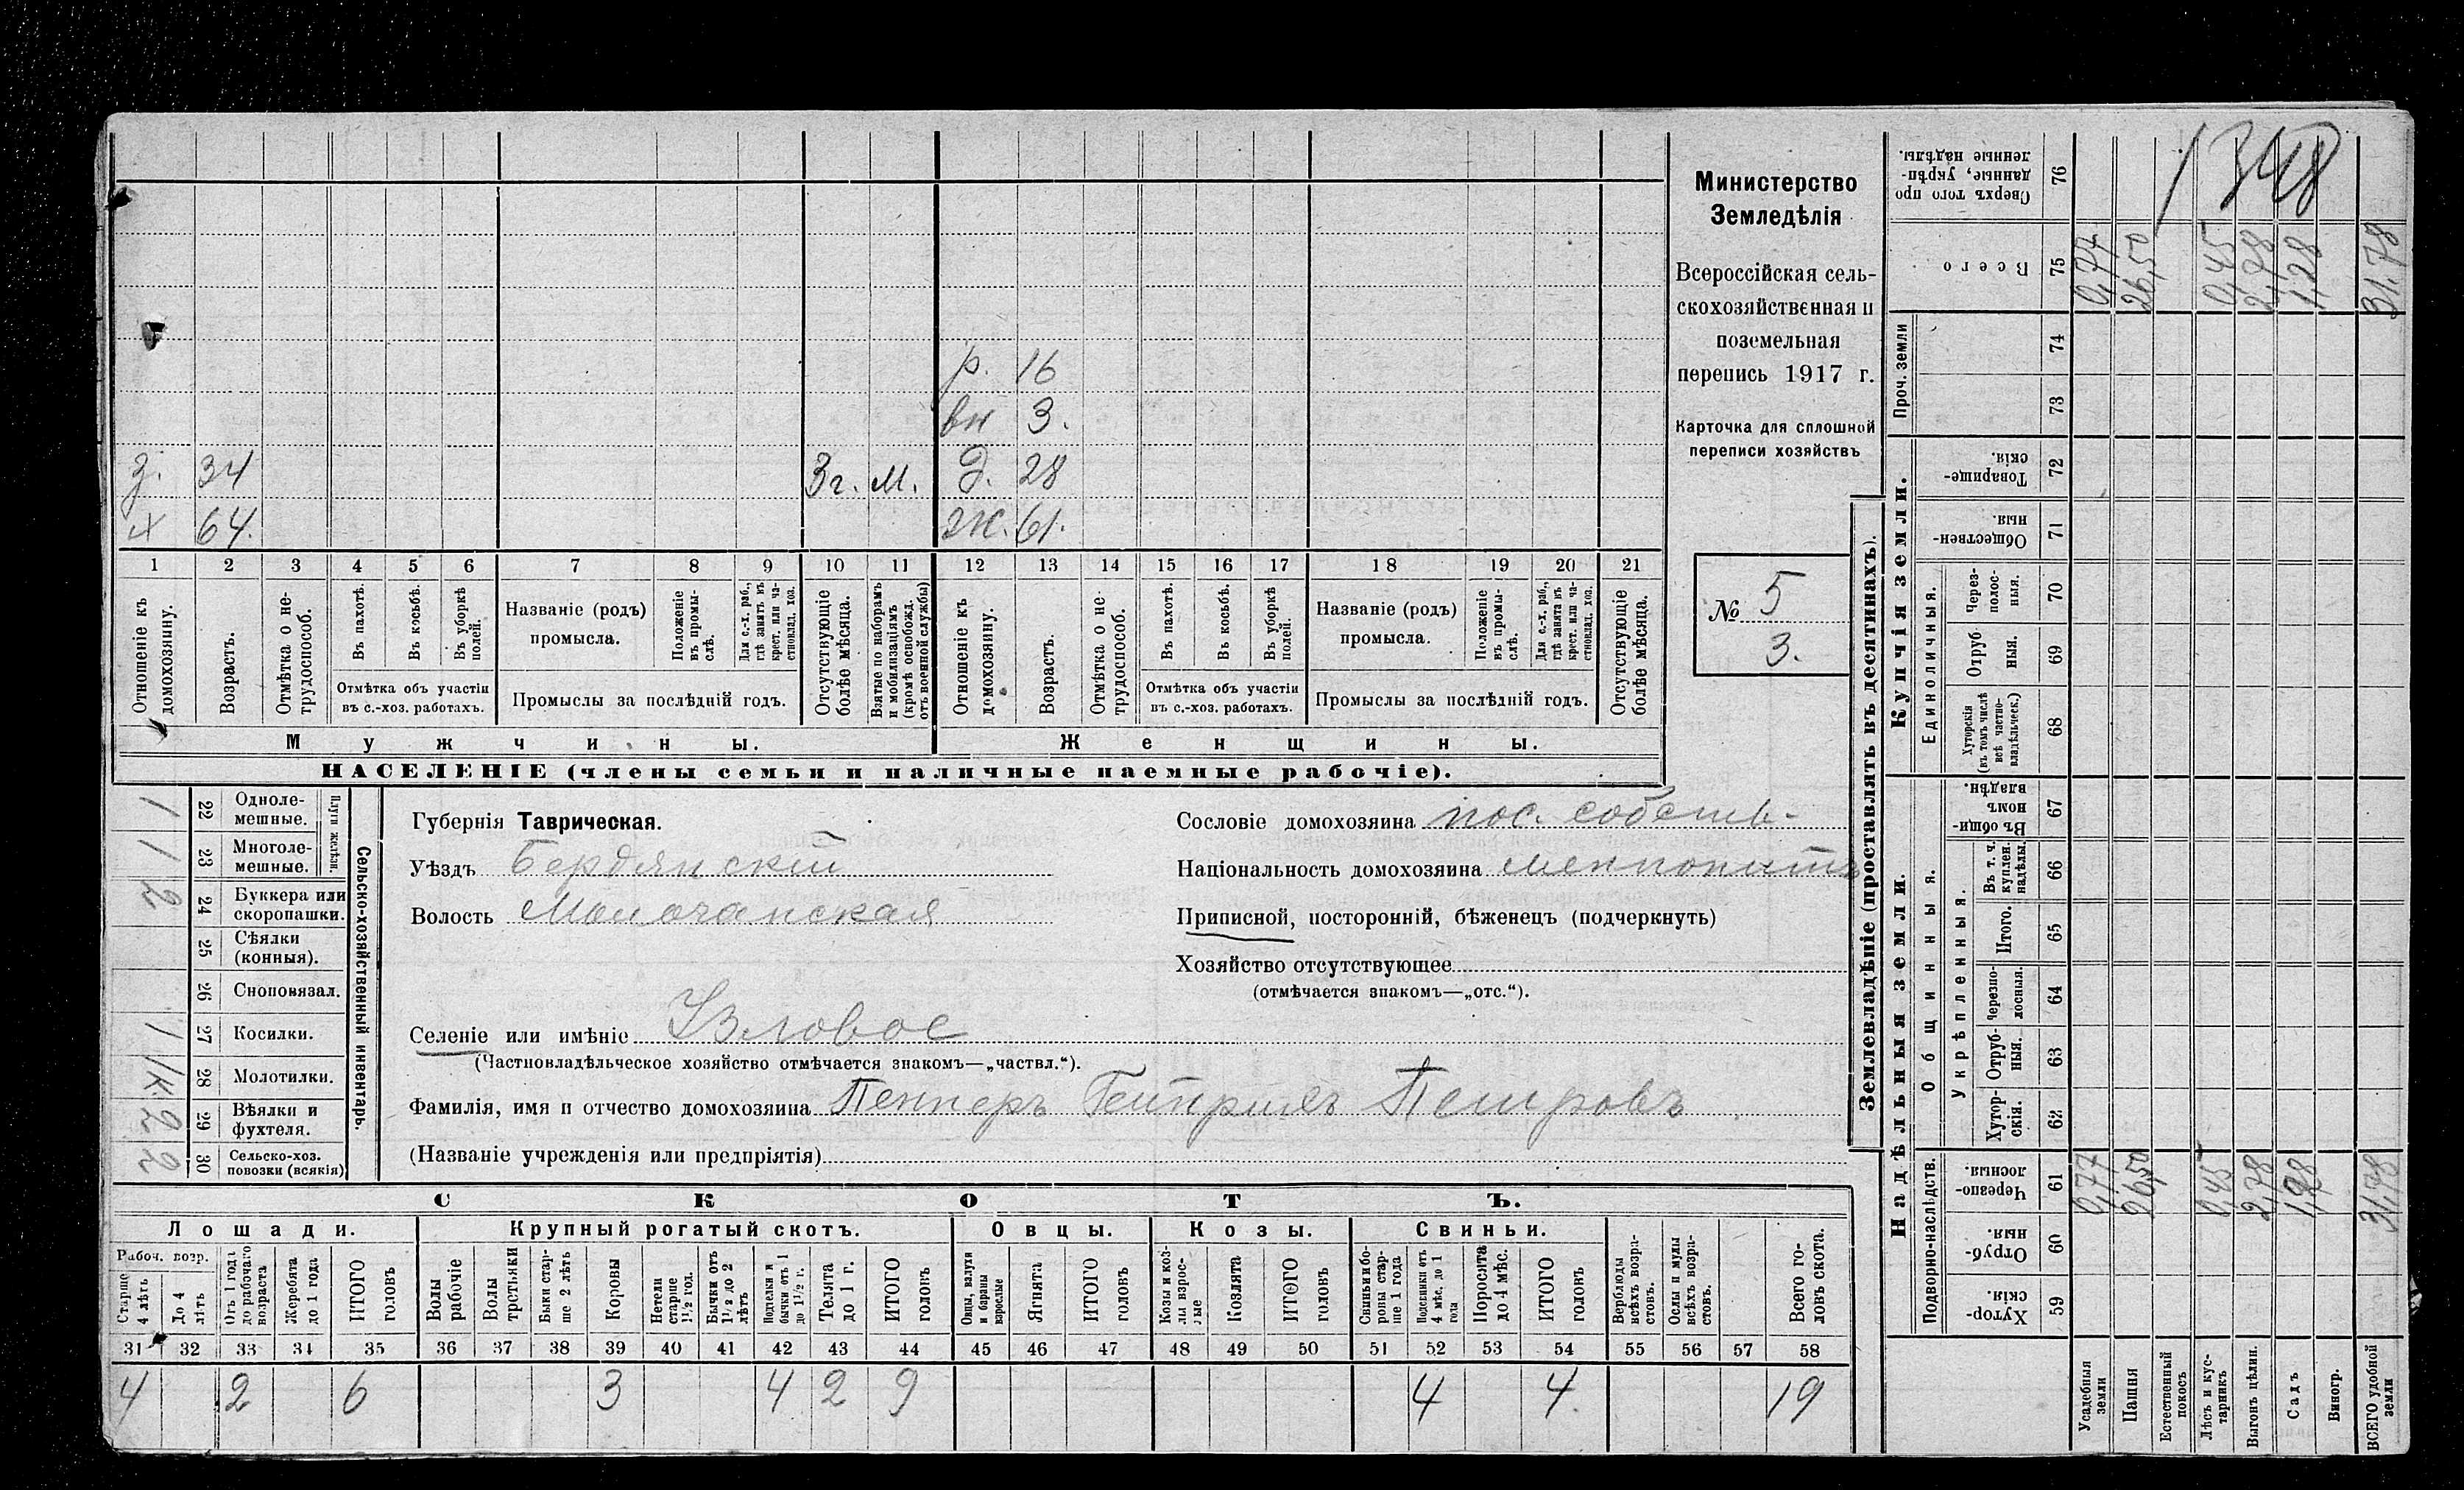 р. 16
вн 3.
з. 34 3 г. м. Д. 28
х 64. Ж. 61.
1 2 3 4 5 6 7 8 9 10 11 12 13 14 15 16 17 18 19 20 21
Отношеніе къ домохозяину.
Возрастъ.
Отмѣтка о не-трудоспособ.
Въ пахотѣ.
Въ косьбѣ.
Въ уборкѣ полей.
Отмѣтка объ участіи въ с.-хоз. работахъ.
Названіе (родъ) промысла.
Положеніе въ промы-слѣ.
Для с.-х. раб., гдѣ занятъ въ крест. или ча-стновлад. хоз.
Промыслы за послѣдній годъ.
Отсутствующіе болѣе мѣсяца.
Взятые по наборамъ и мобилизаціямъ (кромѣ освобожд. отъ военной службы)
Отношеніе къ домохозяину.
Возрастъ.
Отмѣтка о не трудоспособ.
Въ пахотѣ.
Въ косьбѣ.
Въ уборкѣ полей.
Отмѣтка объ участіи въ с.-хоз. работахъ.
Названіе (родъ) промысла.
Положеніе въ промы-слѣ.
Для с.-х. раб., гдѣ занята въ крест. или ча-стновлад. хоз.
Промыслы за послѣдній годъ.
Отсутствующіе болѣе мѣсяца.
Мужчины. Женщины.
НАСЕЛЕНІЕ (члены семьи и наличные наемные рабочіе).
Министерство
Земледѣлія
Всероссійская сель-
скохозяйственная и
поземельная
перепись 1917 г.
Карточка для сплошной
переписи хозяйствъ
№ 5
3.
Сельско-хозяйственный инвентарь.
Плуги желѣзн.
1 22 Одноле-мешные.
1 23 Многоле-мешные.
2 24 Буккера или скоропашки.
25 Сѣялки (конныя).
26 Сноповязал.
1 27 Косилки.
1/к. 28 Молотилки.
2 29 Вѣялки и фухтеля.
2 30 Сельско-хоз. повозки (всякія)
Губернія Таврическая.
Уѣздъ Бердянскій
Волость Молочанская
Сословіе домохозяина пос. собств.
Національность домохозяина меннонитъ
Приписной, посторонній, бѣженецъ (подчеркнуть)
Хозяйство отсутствующее
(отмѣчается знакомъ—„отс.“).
Селеніе или имѣніе Узловое
(Частновладѣльческое хозяйство отмѣчается знакомъ—„частвл.“).
Фамилія, имя и отчество домохозяина Пеннеръ Гейнрихъ Петровъ
(Названіе учрежденія или предпріятія)
СКОТЪ.
Лошади. Крупный рогатый скотъ. Овцы. Козы. Свиньи.
Рабоч. возр.
Старше 4 лѣтъ
До 4 лѣтъ
Отъ 1 года до рабочаго возраста
Жеребята до 1 года
ИТОГО головъ
Волы рабочіе
Волы третьяки
Быки стар-ше 2 лѣтъ
Коровы
Нетели старше 1½ год.
Бычки отъ 1½ до 2 лѣтъ
Подтелки и бычки отъ 1 до 1½ г.
Телята до 1 г.
ИТОГО головъ
Овцы, валухи и бараны взрослые
Ягнята
ИТОГО головъ
Козы и коз-лы взрос-лые
Козлята
ИТОГО головъ
Свиньи и бо-ровы стар-ше 1 года
Подсвинки отъ 4 мѣс. до 1 года
Поросята до 4 мѣс.
ИТОГО головъ
Верблюды всѣхъ возра-стовъ.
Ослы и мулы всѣхъ возра-стовъ.
Всего го-ловъ скота.
31 32 33 34 35 36 37 38 39 40 41 42 43 44 45 46 47 48 49 50 51 52 53 54 55 56 57 58
4 2 6 3 4 2 9 4 4. 19
Землевладѣніе (проставлять въ десятинахъ).
1348
Сверхъ того про данные, укрѣп-ленные надѣлы. 76
Всего 75 0,77 26,50 0,45 2,78 1,28 31,78
Проч. земли 74
73
Купчія земли.
Товарище-скія. 72
Обществен-ныя. 71
Единоличныя.
Через-полос-ныя. 70
Отруб ныя. 69
Хуторскія (въ томъ числѣ всѣ частно-владѣльческ.) 68
Надѣльныя земли.
Общинныя.
Въ общи-номъ владѣн. 67
Укрѣпленныя.
Въ т. ч. куплен. надѣлы. 66
Итого. 65
Черезпо-лосныя. 64
Отруб-ныя. 63
Хутор-скія. 62
Подворно-наслѣдств.
Черезпо-лосныя. 61 0,77 26,50 0,45 2,78 1,28 31,78
Отруб-ныя. 60
Хутор-скія. 59
Усадебныя земли
Пашня
Естественный покосъ
Лѣсъ и кус-тарникъ
Выгонъ цѣлин.
Садъ
Виногр.
ВСЕГО удобной земли